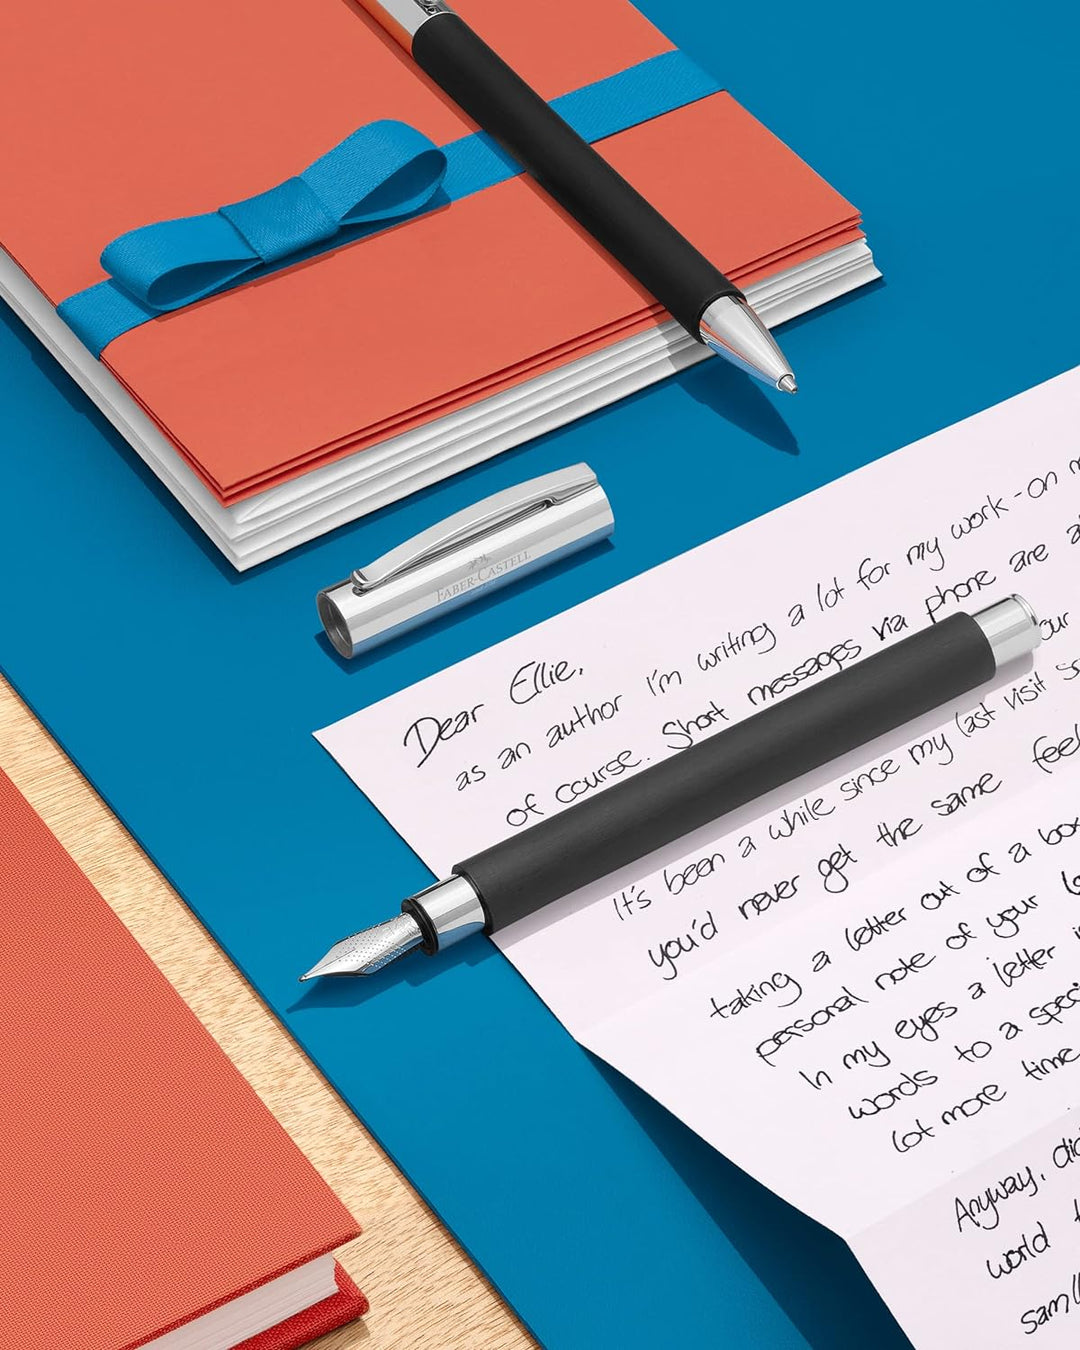 FABER-CASTELL
Dear Ellie,
as an author I'm writing a lot for my work - on
of course. Short messages via phone are
It's been a while since my last visit
you'd never get the same
taking a letter out of a box
personal note of your
In my eyes a letter
words to a
lot more time
Anyway,
world